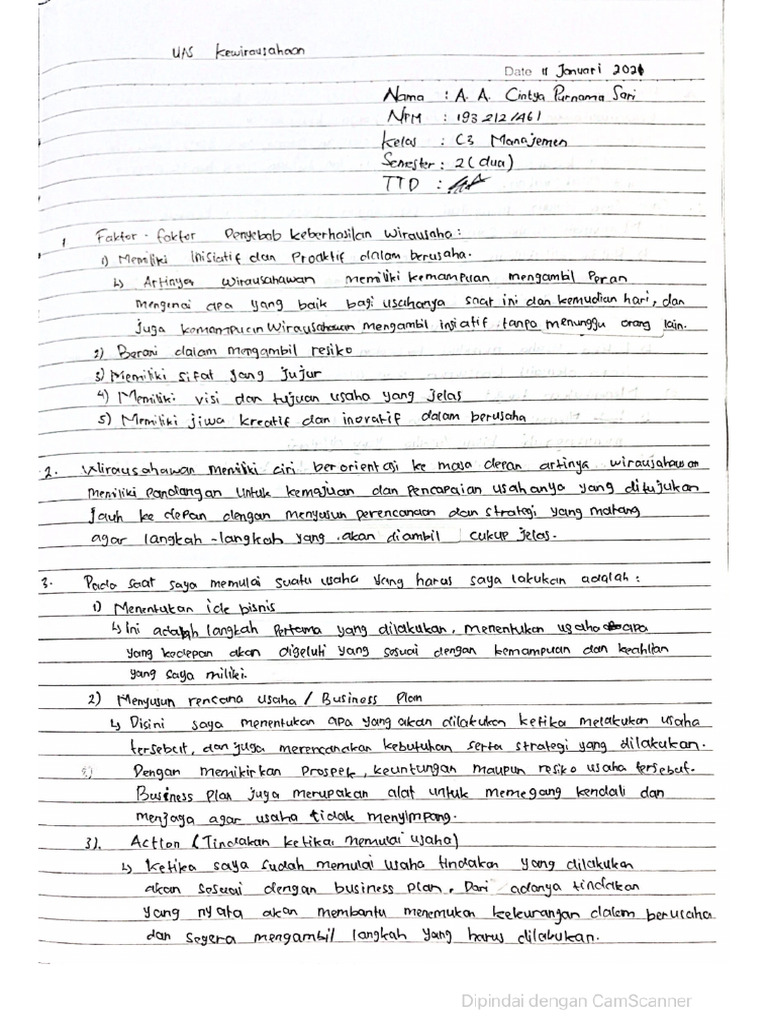 UAS Kewirausahaan
Date 11 Januari 2021
Nama : A. A. Cintya Purnama Sari
NPM : 1932121461
Kelas : C3 Manajemen
Semester : 2 (dua)
TTD :
1 Faktor - faktor Penyebab keberhasilan wirausaha :
1) Memiliki inisiatif dan Proaktif dalam berusaha.
↳ Artinya wirausahawan memiliki kemampuan mengambil Peran
mengenai apa yang baik bagi usahanya saat ini dan kemudian hari, dan
juga kemampuan wirausahawan mengambil insiatif tanpa menunggu orang lain.
2) Berani dalam mengambil resiko
3) Memiliki sifat yang jujur
4) Memiliki visi dan tujuan usaha yang jelas
5) Memiliki jiwa kreatif dan inovatif dalam berusaha
2. Wirausahawan memiliki ciri berorientasi ke masa depan artinya wirausahawan
memiliki pandangan untuk kemajuan dan pencapaian usahanya yang ditujukan
jauh ke depan dengan menyusun perencanaan dan strategi yang matang
agar langkah-langkah yang akan diambil cukup jelas.
3. Pada saat saya memulai suatu usaha yang harus saya lakukan adalah :
1) Menentukan ide bisnis
↳ Ini adalah langkah pertama yang dilakukan, menentukan usaha apa
yang kedepan akan digeluti yang sesuai dengan kemampuan dan keahlian
yang saya miliki.
2) Menyusun rencana usaha / Business Plan
↳ Disini saya menentukan apa yang akan dilakukan ketika melakukan usaha
tersebut, dan juga merencanakan kebutuhan serta strategi yang dilakukan.
Dengan memikirkan prospek, keuntungan maupun resiko usaha tersebut.
Business plan juga merupakan alat untuk memegang kendali dan
menjaga agar usaha tidak menyimpang.
3). Action (Tindakan ketika memulai usaha)
↳ Ketika saya sudah memulai usaha tindakan yang dilakukan
akan sesuai dengan business plan. Dari adanya tindakan
yang nyata akan membantu menemukan kekurangan dalam berusaha
dan segera mengambil langkah yang harus dilakukan.
Dipindai dengan CamScanner